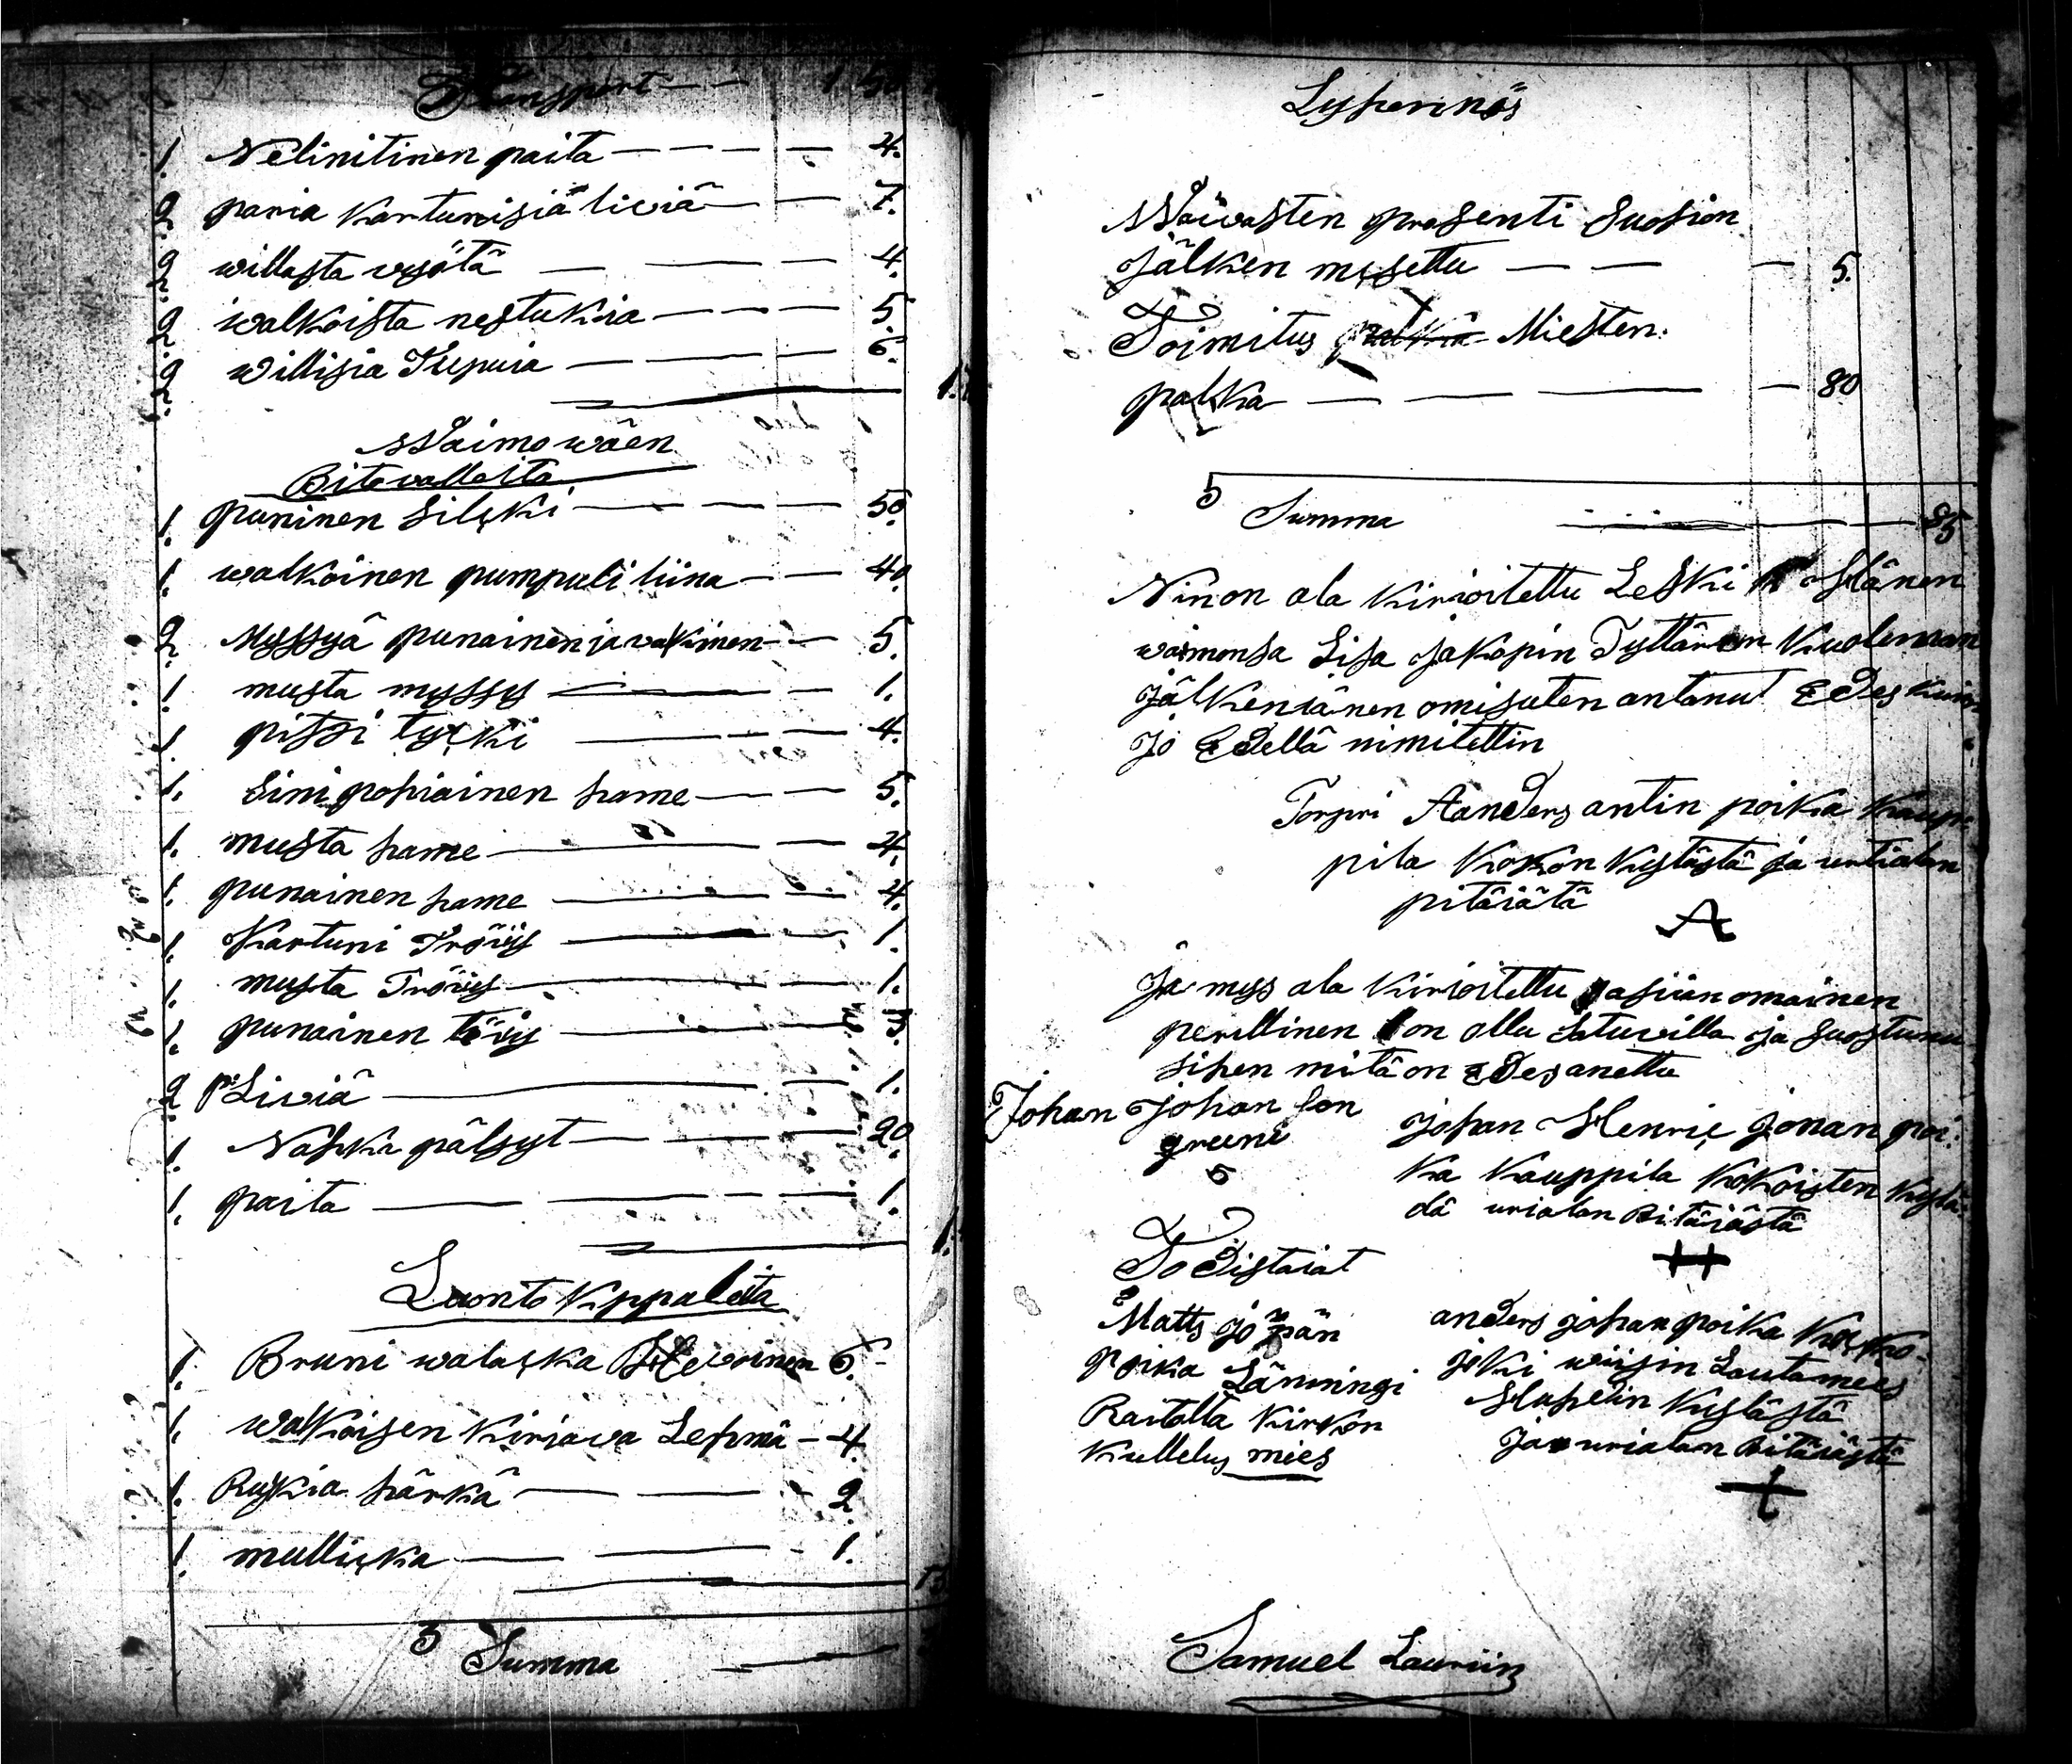 Transport — — 1 50
1. Nelinitinen paita — — — — 4.
2. paria Kartunisia liviä — — 7.
2. willasta vyötä — — — 4.
2. walkoista nestukia — — — 5.
2. willisia Tupuia — — — 6.
Waimo wäen
Pitovatteita
1. puninen Silcki — — — 50.
1. walkoinen pumpuli liina — — 40
2. Myssyä punainen ja valkinen — — 5.
1. musta myssy — — 1.
1. pitsi tycki — — — 4.
1. Sini pohiainen hame — — 5.
1. musta hame — — 4.
1. punainen hame — — 4.
1. Kartuni Tröijy — — 1.
1. musta Tröijy — — 1.
1. punainen töijy — — 3.
2 pr Liviä — — 1.
1. Nahka pälsyt — — — 20
1. paita — — — 1.
Luonto Kappaleita
1. Bruni walacka Hevoinen 6.
1. walkoisen Kiriava Lehmä — 4
1. Ruskia härkä — — 2.
1. mullicka — — 1.
3 Summa
Lyhennös
Waivasten presenti Suosion
jälken mysettu — — — 5.
Toimitus palkka Miesten.
palka — — — — 80
5 Summa — — 85
Nin on ala kirioitettu Leski Hänen
waimonsa Lisa jakopin Tyttären Kuoleman
jälkeniänen omisuten antanut Edes
jo Edellä nimitettin
Torpri Aanders antin poika Kaup-
pila Kokon Kylästä ja urtialan
pitäiätä
A
Ja mys ala Kirioitettu asiian omainen
perillinen on ollu Satuvilla ja suostunu
sihen mitä on Edes anettu
Johan Johan Lon
greeni
Johan Henric jonan poi-
ka Kauppila Kokoisten Kylä-
dä urialan Pitäiästä
++
Todistaiat
Matts jo hän
poika Länningi
Raitalta Kirkon
Kullelus mies
anders johan poika
joki wiisin Lautamees
Huhdin Kylästä
ja urialan Pitäiästä
+
Samuel Lauriin